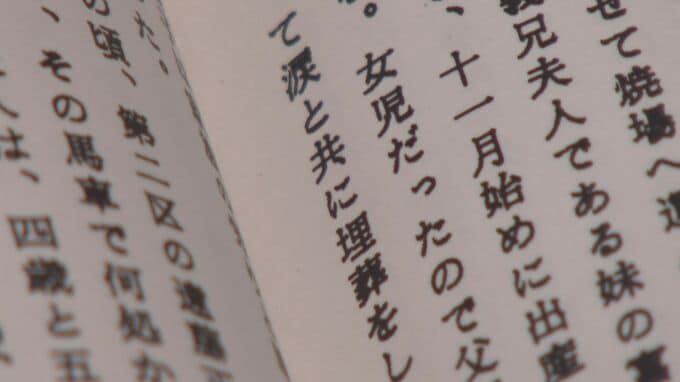 せて焼場へ遺
義兄夫人である妹の
、十一月始めに出産
。女児だったので父
て涙と共に埋葬をし
た。
の頃、第二区の遠藤
、その馬車で何処か
は、四歳と五